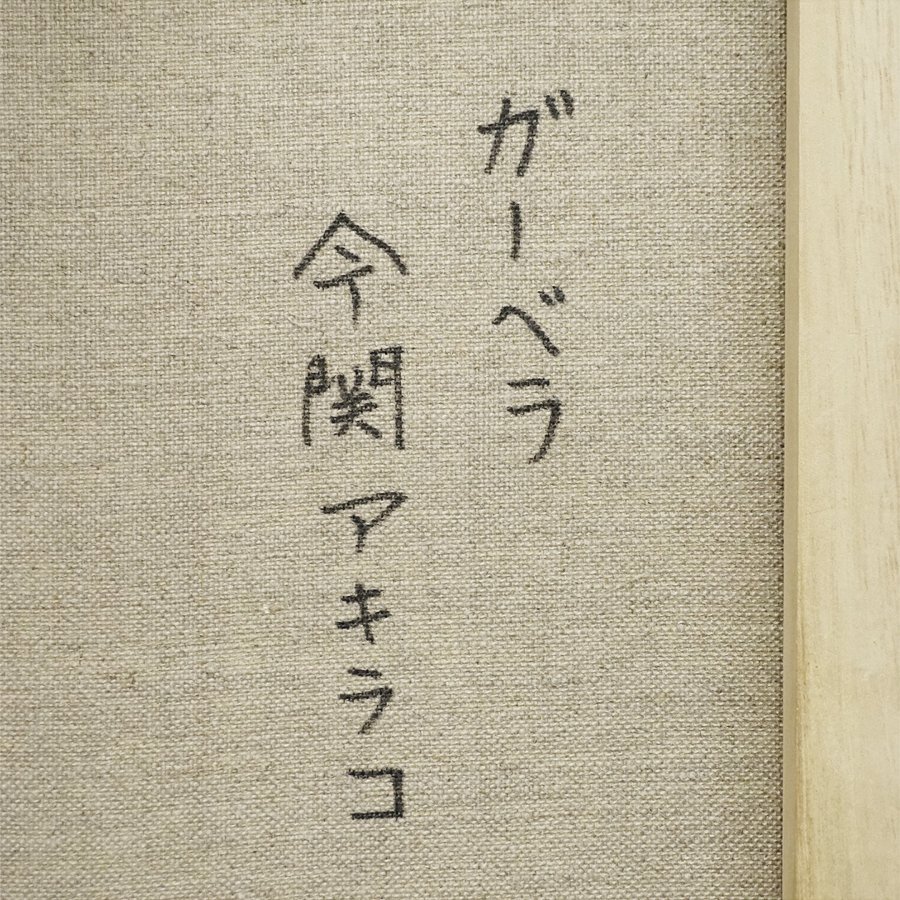 ガーベラ
今関アキラコ